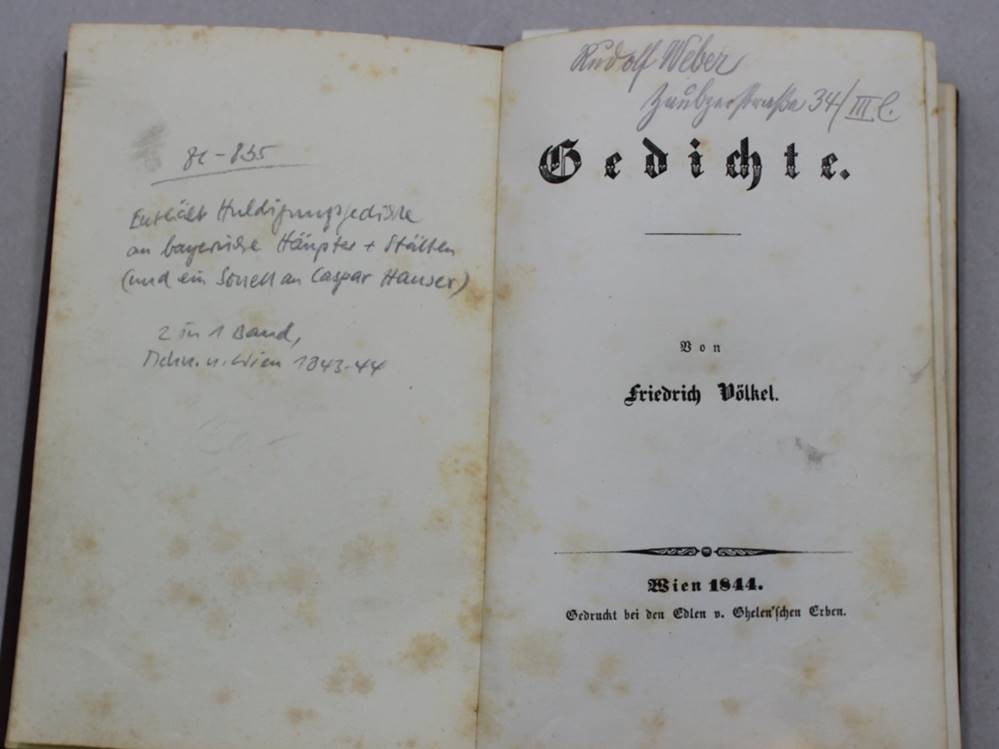 82-835
Enthält Huldigungsgedichte
an bayerische Häupter + Stätten
(und ein Sonett an Caspar Hauser)
2 in 1 Band,
Mchn. u. Wien 1843-44
Rudolf Weber
34/III l.
Gedichte.
Von
Friedrich Völkel.
Wien 1844.
Gedruckt bei den Edlen v. Ghelen'schen Erben.